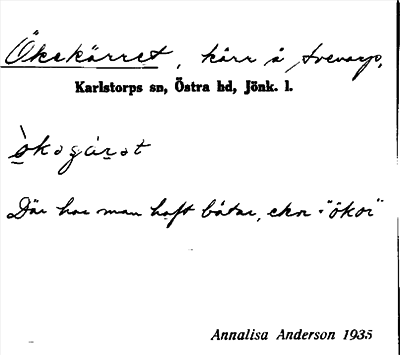 Ökekärret, kärr å Arevarp,
Karlstorps sn, Östra hd, Jönk. l.
ò̱kəgár̲ət
Där har man haft båtar, ekor "ökor"
Annalisa Anderson 1935